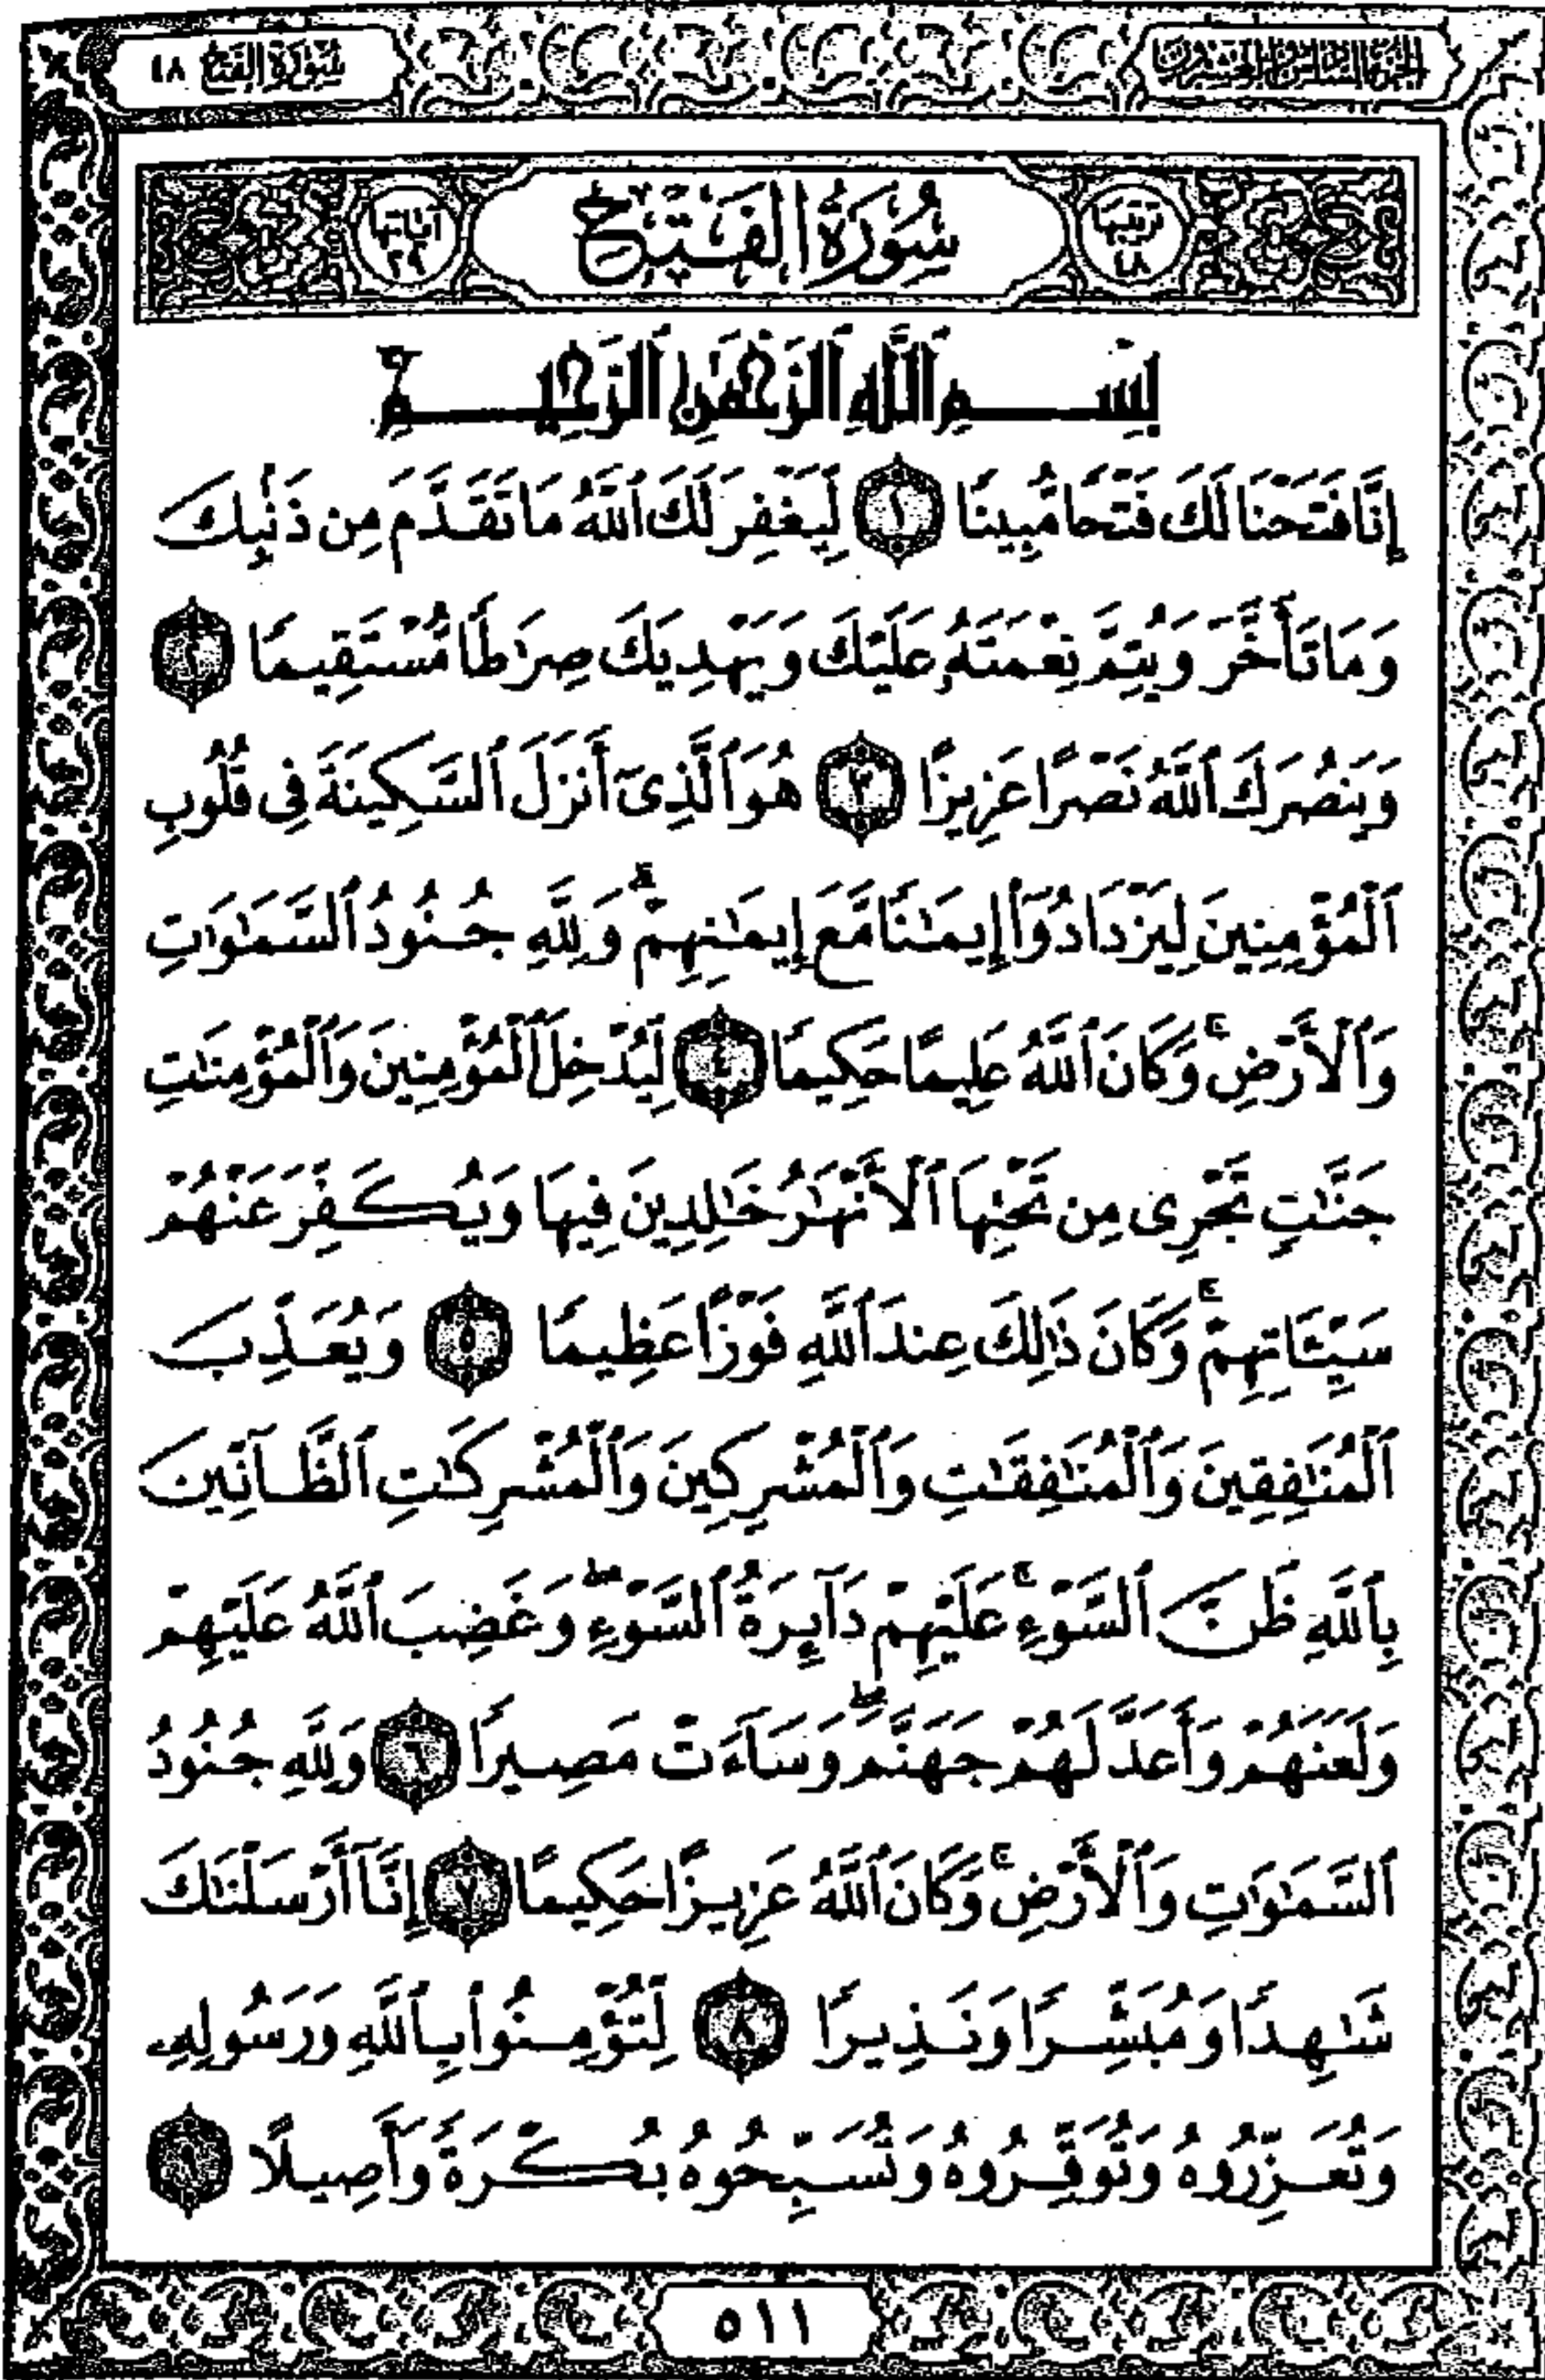 الجزء السادس والعشرون
سورة الفتح ٤٨
ترتيبها ٤٨
سُورَةُ الْفَتْحِ
آياتها ٢٩
بِسْمِ ٱللَّهِ ٱلرَّحْمَٰنِ ٱلرَّحِيمِ
إِنَّا فَتَحْنَا لَكَ فَتْحًا مُّبِينًا ١ لِّيَغْفِرَ لَكَ ٱللَّهُ مَا تَقَدَّمَ مِن ذَنۢبِكَ
وَمَا تَأَخَّرَ وَيُتِمَّ نِعْمَتَهُۥ عَلَيْكَ وَيَهْدِيَكَ صِرَٰطًا مُّسْتَقِيمًا ٢
وَيَنصُرَكَ ٱللَّهُ نَصْرًا عَزِيزًا ٣ هُوَ ٱلَّذِىٓ أَنزَلَ ٱلسَّكِينَةَ فِى قُلُوبِ
ٱلْمُؤْمِنِينَ لِيَزْدَادُوٓا۟ إِيمَٰنًا مَّعَ إِيمَٰنِهِمْ ۗ وَلِلَّهِ جُنُودُ ٱلسَّمَٰوَٰتِ
وَٱلْأَرْضِ ۚ وَكَانَ ٱللَّهُ عَلِيمًا حَكِيمًا ٤ لِّيُدْخِلَ ٱلْمُؤْمِنِينَ وَٱلْمُؤْمِنَٰتِ
جَنَّٰتٍ تَجْرِى مِن تَحْتِهَا ٱلْأَنْهَٰرُ خَٰلِدِينَ فِيهَا وَيُكَفِّرَ عَنْهُمْ
سَيِّـَٔاتِهِمْ ۚ وَكَانَ ذَٰلِكَ عِندَ ٱللَّهِ فَوْزًا عَظِيمًا ٥ وَيُعَذِّبَ
ٱلْمُنَٰفِقِينَ وَٱلْمُنَٰفِقَٰتِ وَٱلْمُشْرِكِينَ وَٱلْمُشْرِكَٰتِ ٱلظَّآنِّينَ
بِٱللَّهِ ظَنَّ ٱلسَّوْءِ ۚ عَلَيْهِمْ دَآئِرَةُ ٱلسَّوْءِ ۖ وَغَضِبَ ٱللَّهُ عَلَيْهِمْ
وَلَعَنَهُمْ وَأَعَدَّ لَهُمْ جَهَنَّمَ ۖ وَسَآءَتْ مَصِيرًا ٦ وَلِلَّهِ جُنُودُ
ٱلسَّمَٰوَٰتِ وَٱلْأَرْضِ ۚ وَكَانَ ٱللَّهُ عَزِيزًا حَكِيمًا ٧ إِنَّآ أَرْسَلْنَٰكَ
شَٰهِدًا وَمُبَشِّرًا وَنَذِيرًا ٨ لِّتُؤْمِنُوا۟ بِٱللَّهِ وَرَسُولِهِۦ
وَتُعَزِّرُوهُ وَتُوَقِّرُوهُ وَتُسَبِّحُوهُ بُكْرَةً وَأَصِيلًا ٩
٥١١